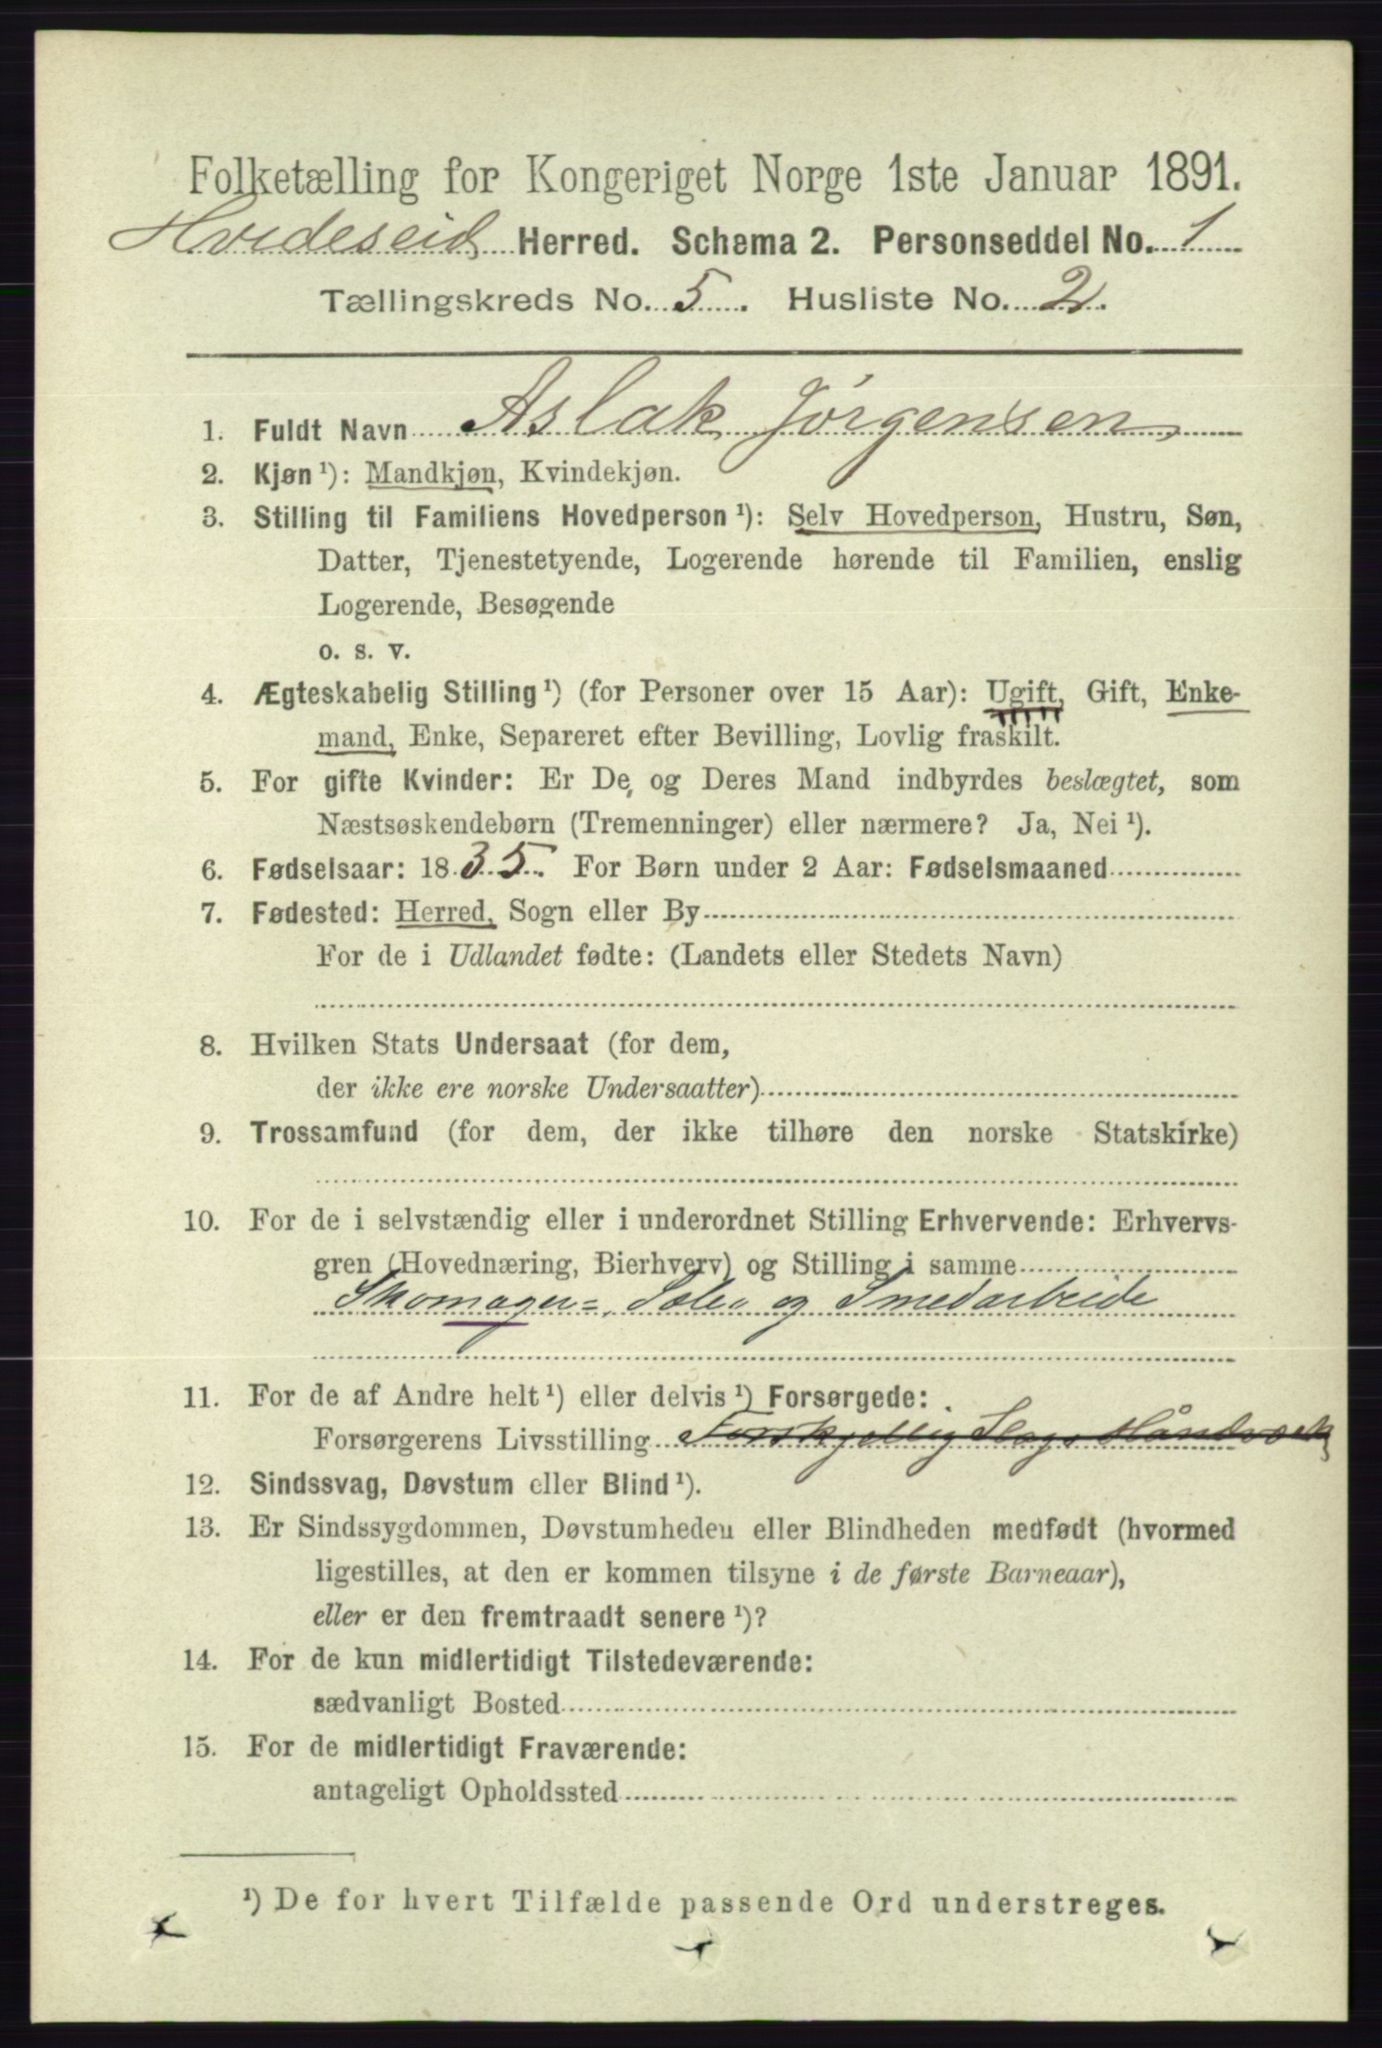 Folketælling for Kongeriget Norge 1ste Januar 1891.
Hvideseid Herred. Schema 2. Personseddel No. 1
Tællingskreds No. 5. Husliste No. 2.
1. Fuldt Navn Aslak Jørgensen,
2. Kjøn ¹): Mandkjøn, Kvindekjøn.
3. Stilling til Familiens Hovedperson ¹): Selv Hovedperson, Hustru, Søn,
Datter, Tjenestetyende, Logerende hørende til Familien, enslig
Logerende, Besøgende
o. s. v.
4. Ægteskabelig Stilling ¹) (for Personer over 15 Aar): Ugift, Gift, Enke-
mand, Enke, Separeret efter Bevilling, Lovlig fraskilt.
5. For gifte Kvinder: Er De og Deres Mand indbyrdes beslægtet, som
Næstsøskendebørn (Tremenninger) eller nærmere? Ja, Nei ¹).
6. Fødselsaar: 1835. For Børn under 2 Aar: Fødselsmaaned
7. Fødested: Herred, Sogn eller By
For de i Udlandet fødte: (Landets eller Stedets Navn)
8. Hvilken Stats Undersaat (for dem,
der ikke ere norske Undersaatter)
9. Trossamfund (for dem, der ikke tilhøre den norske Statskirke)
10. For de i selvstændig eller i underordnet Stilling Erhvervende: Erhvervs-
gren (Hovednæring, Bierhverv) og Stilling i samme
Skomager=, og Smedarbeide
11. For de af Andre helt ¹) eller delvis ¹) Forsørgede:
Forsørgerens Livsstilling Forskjellig Slags Håndværk
12. Sindssvag, Døvstum eller Blind ¹).
13. Er Sindssygdommen, Døvstumheden eller Blindheden medfødt (hvormed
ligestilles, at den er kommen tilsyne i de første Barneaar),
eller er den fremtraadt senere ¹)?
14. For de kun midlertidigt Tilstedeværende:
sædvanligt Bosted
15. For de midlertidigt Fraværende:
antageligt Opholdssted
¹) De for hvert Tilfælde passende Ord understreges.